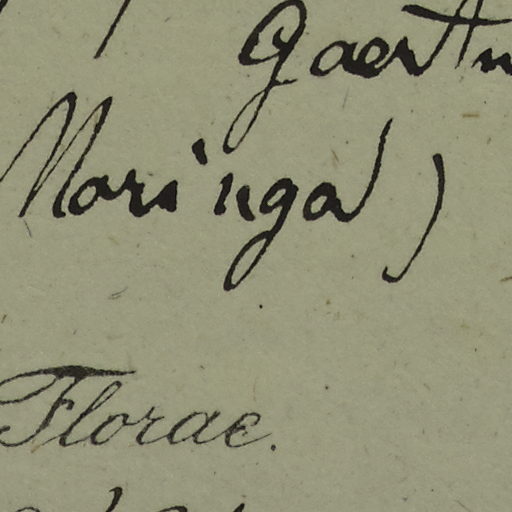 Gaertn
Maringa)
Florae.